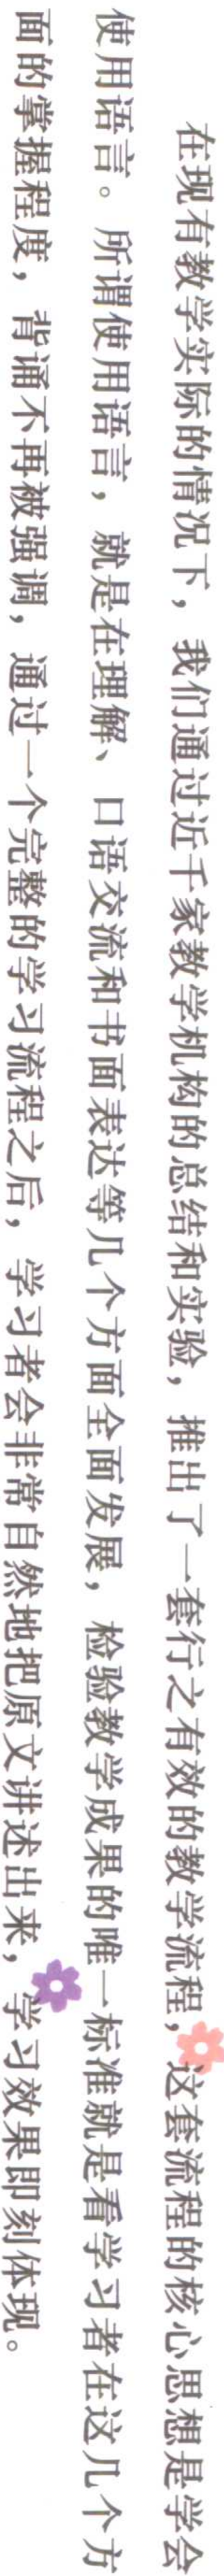 在现有教学实际的情况下，我们通过近千家教学机构的总结和实验，推出了一套行之有效的教学流程，这套流程的核心思想是学会
使用语言。所谓使用语言，就是在理解、口语交流和书面表达等几个方面全面发展，检验教学成果的唯一标准就是看学习者在这几个方
面的掌握程度，背诵不再被强调，通过一个完整的学习流程之后，学习者会非常自然地把原文讲述出来，学习效果即刻体现。